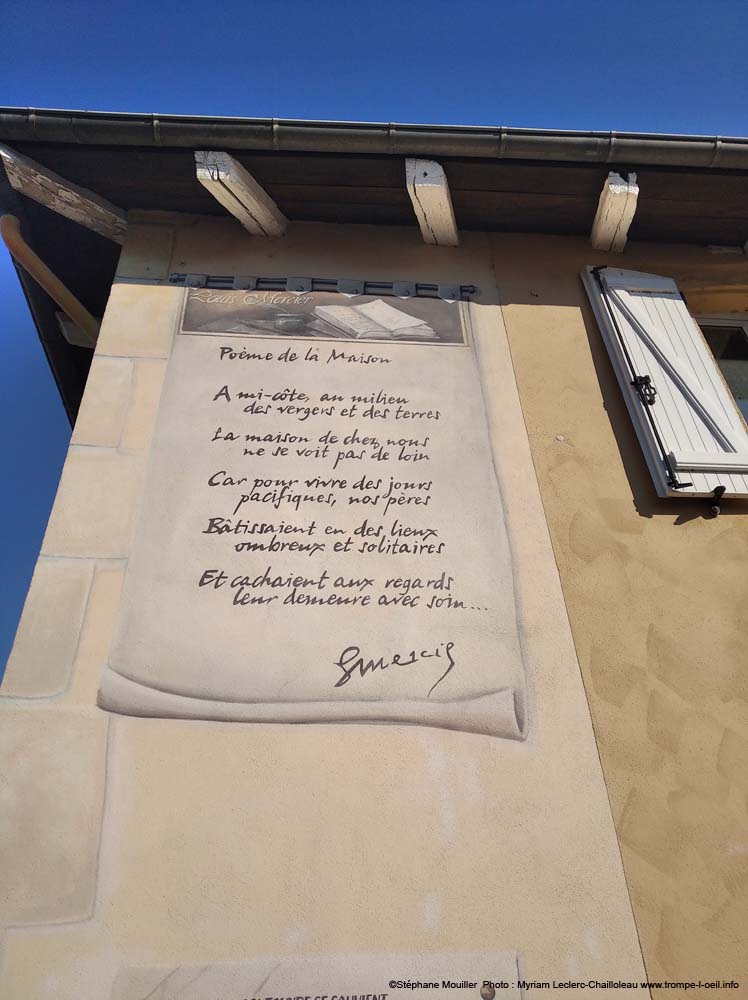 Louis Mercier
Poème de la Maison
A mi-côte, au milieu
des vergers et des terres
La maison de chez nous
ne se voit pas de loin
Car pour vivre des jours
pacifiques, nos pères
Bâtissaient en des lieux
ombreux et solitaires
Et cachaient aux regards
leur demeure avec soin...
SE SOUVIENT
©Stéphane Mouiller Photo : Myriam Leclerc-Chailloleau www.trompe-l-oeil.info